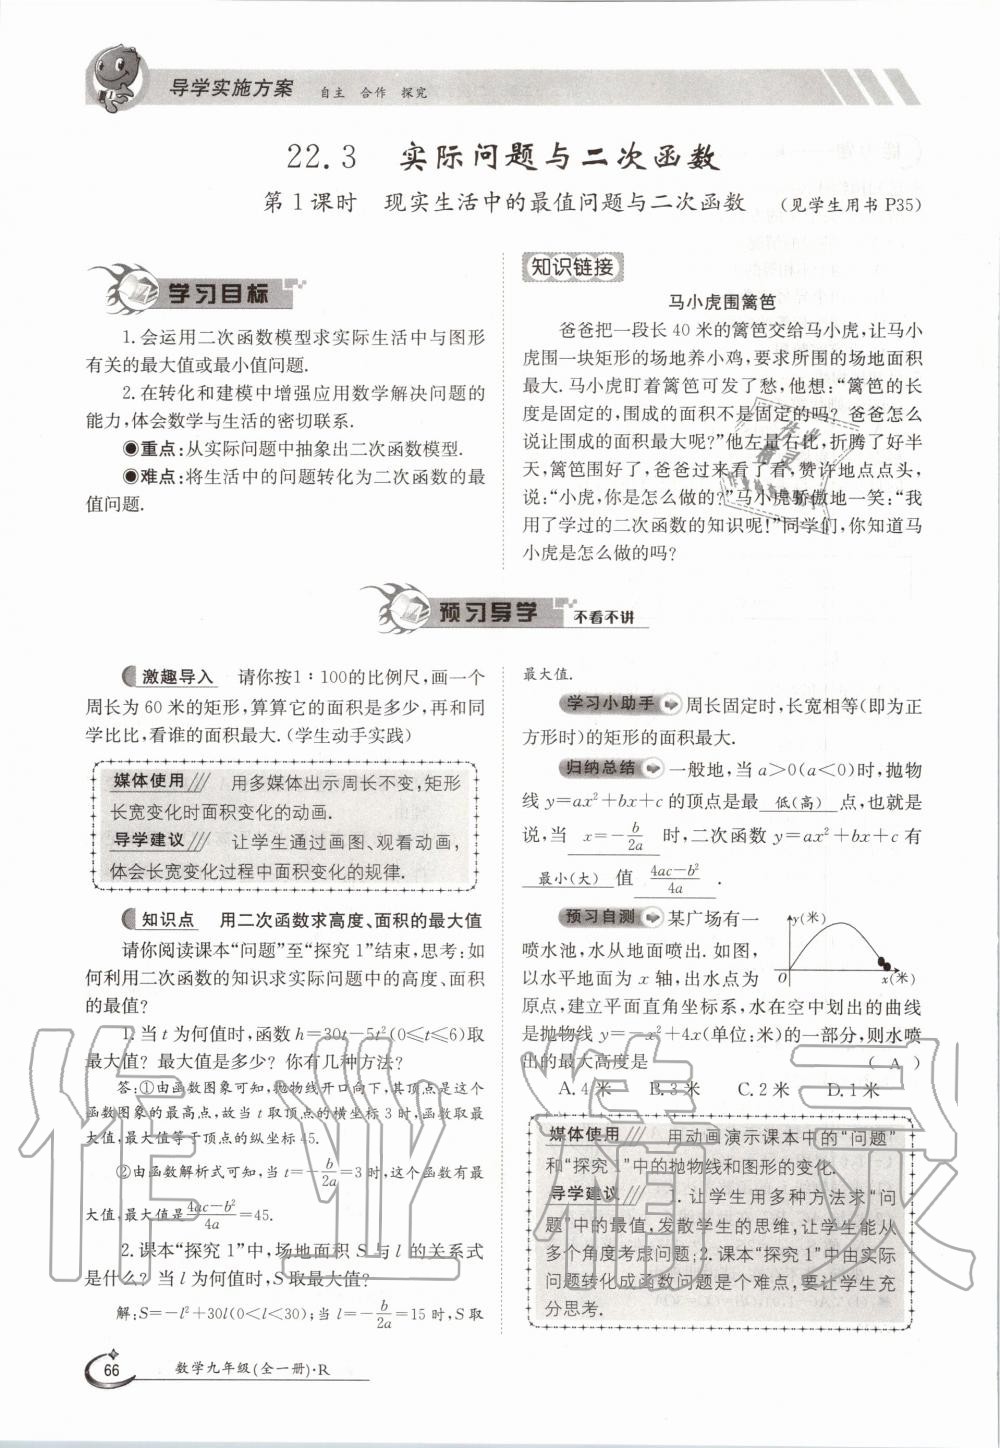 导学实施方案 自主 合作 探究
22.3 实际问题与二次函数
第1课时 现实生活中的最值问题与二次函数 (见学生用书 P35)
学习目标
1.会运用二次函数模型求实际生活中与图形
有关的最大值或最小值问题.
2.在转化和建模中增强应用数学解决问题的
能力,体会数学与生活的密切联系.
◉重点:从实际问题中抽象出二次函数模型.
◉难点:将生活中的问题转化为二次函数的最
值问题.
知识链接
马小虎围篱笆
爸爸把一段长 40 米的篱笆交给马小虎,让马小
虎围一块矩形的场地养小鸡,要求所围的场地面积
最大.马小虎盯着篱笆可发了愁,他想:“篱笆的长
度是固定的,围成的面积不是固定的吗?爸爸怎么
说让围成的面积最大呢?”他左量右比,折腾了好半
天,篱笆围好了,爸爸过来看了看,赞许地点点头,
说:“小虎,你是怎么做的?”马小虎骄傲地一笑:“我
用了学过的二次函数的知识呢!”同学们,你知道马
小虎是怎么做的吗?
预习导学 不看不讲
激趣导入 请你按1∶100的比例尺,画一个
周长为 60 米的矩形,算算它的面积是多少,再和同
学比比,看谁的面积最大.(学生动手实践)
媒体使用 用多媒体出示周长不变,矩形
长宽变化时面积变化的动画.
导学建议 让学生通过画图、观看动画,
体会长宽变化过程中面积变化的规律.
知识点 用二次函数求高度、面积的最大值
请你阅读课本“问题”至“探究 1”结束,思考:如
何利用二次函数的知识求实际问题中的高度、面积
的最值?
1.当 t 为何值时,函数 h=30t-5t²(0≤t≤6)取
最大值?最大值是多少?你有几种方法?
答:①由函数图象可知,抛物线开口向下,其顶点是这个
函数图象的最高点,故当 t 取顶点的横坐标 3 时,函数取最
大值,最大值等于顶点的纵坐标 45.
②由函数解析式可知,当 t=-b/2a=3 时,这个函数有最
大值,最大值是(4ac-b²)/4a=45.
2.课本“探究 1”中,场地面积 S 与 l 的关系式
是什么?当 l 为何值时,S取最大值?
解:S=-l²+30l(0<l<30);当 l=-b/2a=15 时,S 取
最大值.
学习小助手 周长固定时,长宽相等(即为正
方形时)的矩形的面积最大.
归纳总结 一般地,当 a>0(a<0)时,抛物
线 y=ax²+bx+c 的顶点是最 低(高) 点,也就是
说,当 x=-b/2a 时,二次函数 y=ax²+bx+c 有
最小(大) 值 (4ac-b²)/4a .
预习自测 某广场有一
喷水池,水从地面喷出.如图,
以水平地面为 x 轴,出水点为
原点,建立平面直角坐标系,水在空中划出的曲线
是抛物线 y=-x²+4x(单位:米)的一部分,则水喷
出的最大高度是 ( A )
A.4 米 B.3 米 C.2 米 D.1 米
y(米)
O x(米)
媒体使用 用动画演示课本中的“问题”
和“探究 1”中的抛物线和图形的变化.
导学建议 1.让学生用多种方法求“问
题”中的最值,发散学生的思维,让学生能从
多个角度考虑问题;2.课本“探究 1”中由实际
问题转化成函数问题是个难点,要让学生充
分思考.
66 数学九年级(全一册)·R
作业精灵